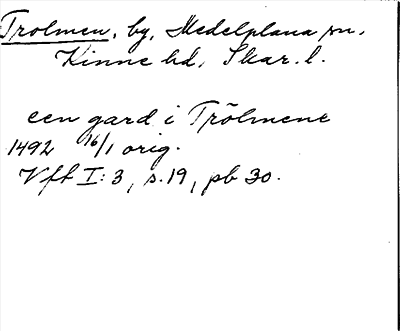 Trolmen, by, Medelplana sn.
Kinne hd, Skar. l.
een gard i Trölmene
1492 16/1 orig.
Vft I:3, s. 19, pb 30.